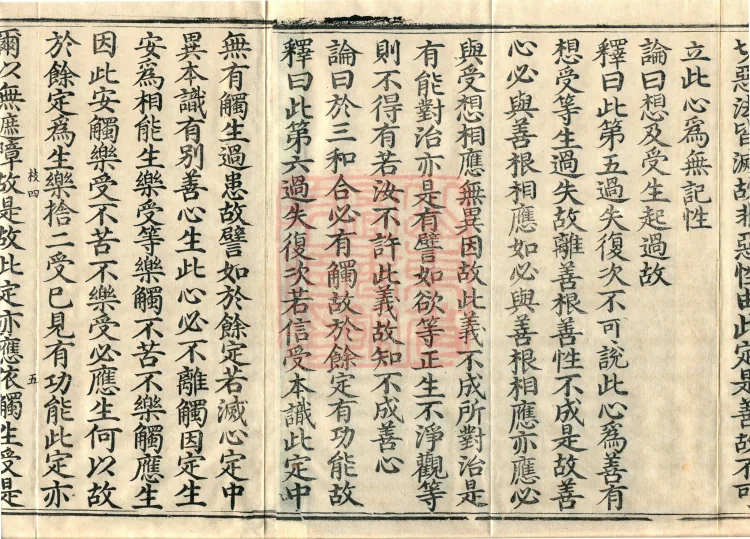 切惡法皆滅故非惡性由此定是善故不可
立此心爲無記性
論曰想及受生起過故
釋曰此第五過失復次不可說此心爲善有
想受等生過失故離善根善性不成是故善
心必與善根相應如必與善根相應亦應必
與受想相應無異因故此義不成所對治是
有能對治亦是有譬如欲等正生不淨觀等
則不得有若汝不許此義故知不成善心
論曰於三和合必有觸故於餘定有功能故
釋曰此第六過失復次若信受本識此定中
無有觸生過患故譬如於餘定若滅心定中
異本識有別善心生此心必不離觸因定生
安爲相能生樂受等樂觸不苦不樂觸應生
因此安觸樂受不苦不樂受必應生何以故
於餘定爲生樂捨二受已見有功能此定亦
爾以無障故是故此定亦應依觸生受是
枝四
五